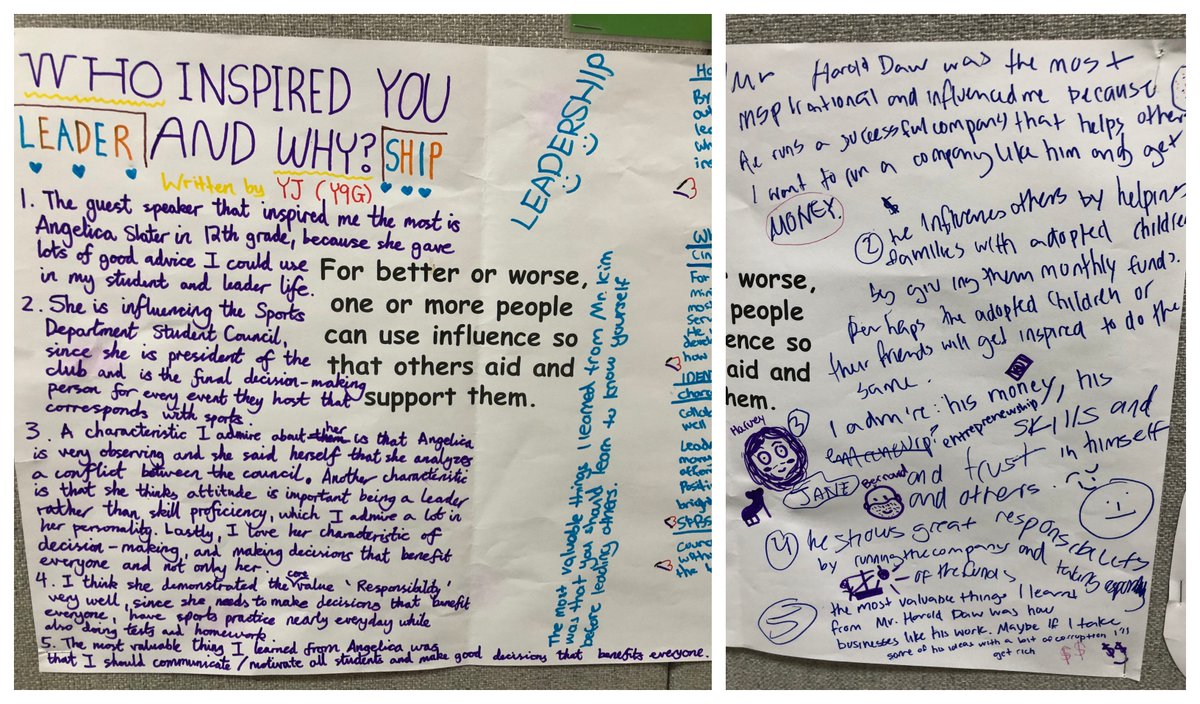 WHO INSPIRED YOU
LEADER AND WHY? SHIP
Written by YJ (Y9G)
1. The guest speaker that inspired me the most is
Angelica Slater in 12th grade, because she gave
lots of good advice I could use
in my student and leader life.
2. She is influencing the Sports
Department Student Council,
since she is president of the
club and is the final decision-making
person for every event they host that
corresponds with sports.
3. A characteristic I admire about her is that Angelica
is very observing and she said herself that she analyzes
a conflict between the council. Another characteristic
is that she thinks attitude is important being a leader
rather than skill proficiency, which I admire a lot in
her personality. Lastly, I love her characteristic of
decision-making, and making decisions that benefit
everyone and not only her.
4. I think she demonstrated the core value 'Responsibility'
very well, since she needs to make decisions that benefit
everyone, have sports practice nearly everyday while
also doing tests and homework.
5. The most valuable thing I learned from Angelica was
that I should communicate/motivate all students and make good decisions that benefits everyone.
For better or worse,
one or more people
can use influence so
that others aid and
support them.
LEADERSHIP
The most valuable things I learned from Mr. Kim
was that you should learn to know yourself
before leading others.
Mr Harold Daw was the most
inspirational and influenced me because
he runs a successful company that helps others
I want to run a company like him and get
MONEY.
$
2 he influences others by helping
families with adopted children
by giving them monthly funds.
Perhaps the adopted children or
their friends will get inspired to do the
same.
worse,
people
ence so
aid and
hem.
3 I admire: his money, his
entrepreneurship, skills and
and trust in himself
and others.
Harvey
JANE
Bernard
4 he shows great responsibility
by running the company and taking
of the funds
5 the most valuable things I learned
from Mr. Harold Daw was how
businesses like his work. Maybe if I take
some of his ideas with a bit of corruption I'll
get rich
$$ $$